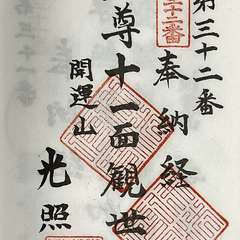 第三十二番
奉納経
尊十一面観世
開運山
光照